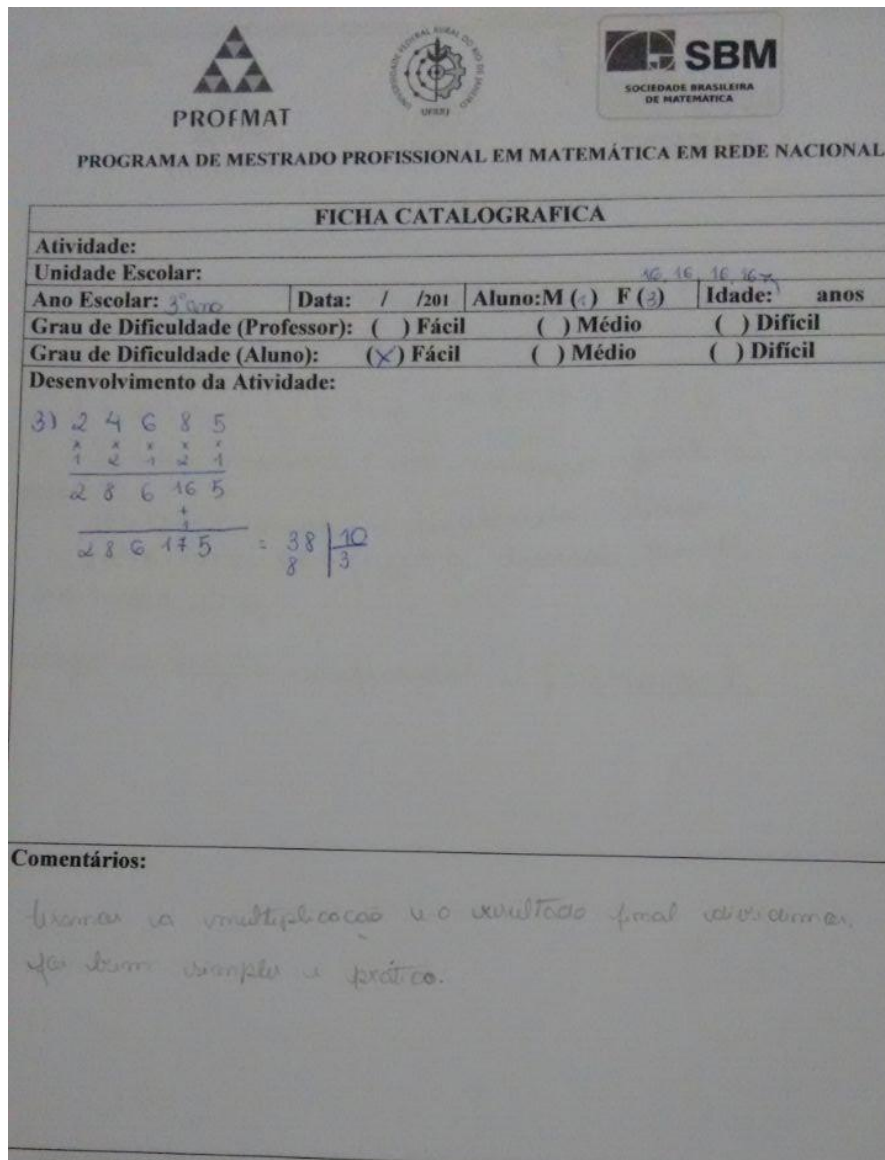 PROFMAT
UNIVERSIDADE FEDERAL RURAL DO RIO DE JANEIRO
UFRRJ
SBM
SOCIEDADE BRASILEIRA
DE MATEMÁTICA
PROGRAMA DE MESTRADO PROFISSIONAL EM MATEMÁTICA EM REDE NACIONAL
FICHA CATALOGRAFICA
Atividade:
Unidade Escolar:
16, 16, 16, 16
Ano Escolar: 3º ano Data: / /201 Aluno:M (1) F (3) Idade: anos
Grau de Dificuldade (Professor): ( ) Fácil ( ) Médio ( ) Difícil
Grau de Dificuldade (Aluno): (X) Fácil ( ) Médio ( ) Difícil
Desenvolvimento da Atividade:
3) 2 4 6 8 5
x x x x x
1 2 1 2 1
2 8 6 16 5
+
1
2 8 6 17 5 = 38 | 10
8 3
Comentários:
Usamos a multiplicação e o resultado final adicionamos.
foi bem simples e prático.